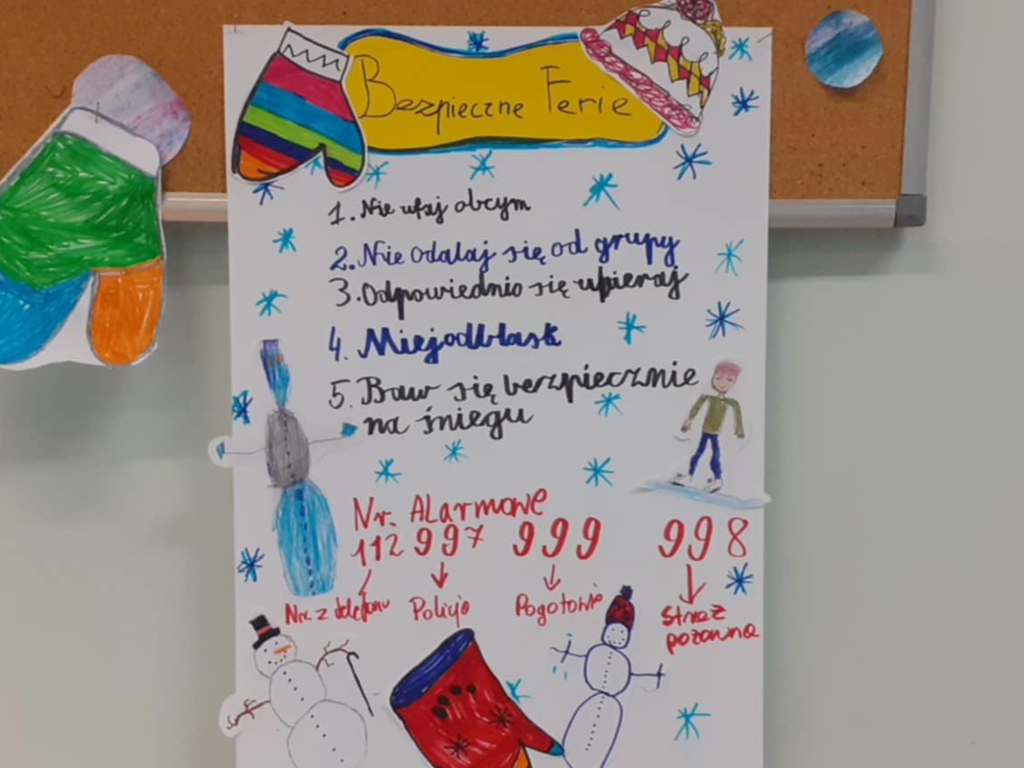 Bezpieczne Ferie
1. Nie ufaj obcym
2. Nie odalaj się od grupy
3. Odpowiednio się ubieraj
4. Miej odblask
5. Baw się bezpiecznie
na śniegu
Nr. Alarmowe
112 997 999 998
Nr. z telefonu Policja Pogotowie Straż
pożarna